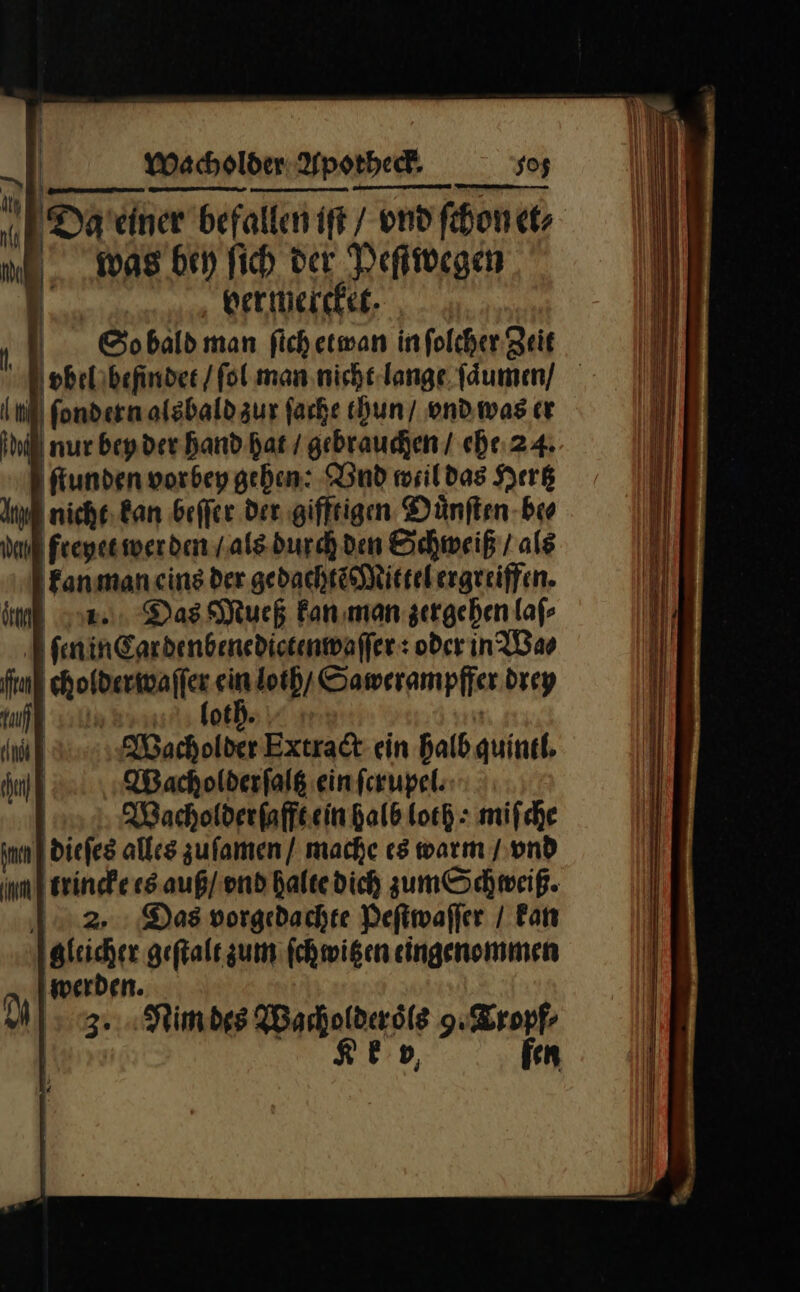 Wacholder Apotheck. 505
Da einer befallen iſt / vnd ſchon et⸗
was bey ſich der Peſt wegen
vermercket.
So bald man ſich etwan in ſolcher Zeit
vbel befindet / ſol man nicht lange ſaͤumen /
ſondern alsbald zur ſache thun / vnd was er
nur bey der hand hat / gebrauchen / ehe 24.
ſtunden vorbey gehen: Vnd weil das Hertz
nicht kan beſſer der gifftigen Duͤnſten be⸗
freyet werden / als durch den Schweiß / als
kan man eins der gedachtẽ Mittel ergreiffen.
1. Das Mueß kan man zergehen laſ⸗
ſen in Cardenbenedictenwaſſer : oder in Wa⸗
cholderwaſſer ein loth / Sawerampffer drey
loth.
Wacholder Extract ein halb quintl.
Wacholderſaltz ein ſcrupel.
Wacholderſafft ein halb loth : miſche
dieſes alles zuſamen / mache es warm / vnd
trincke es auß / vnd halte dich zum Schweiß.
2. Das vorgedachte Peſtwaſſer / kan
gleicher geſtalt zum ſchwitzen eingenommen
werden.
3. Nim des Wacholderoͤls 9. Tropf⸗
K k v, ſen